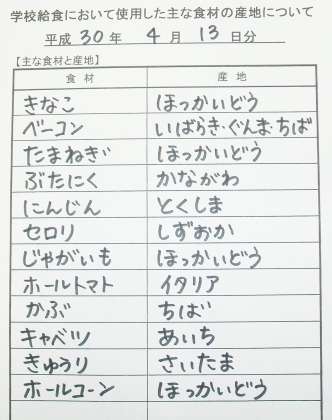 学校給食において使用した主な食材の産地について
平成 30 年 4 月 13 日分
【主な食材と産地】
食 材 産 地
きなこ ほっかいどう
ベーコン いばらき・ぐんま・ちば
たまねぎ ほっかいどう
ぶたにく かながわ
にんじん とくしま
セロリ しずおか
じゃがいも ほっかいどう
ホールトマト イタリア
かぶ ちば
キャベツ あいち
きゅうり さいたま
ホールコーン ほっかいどう